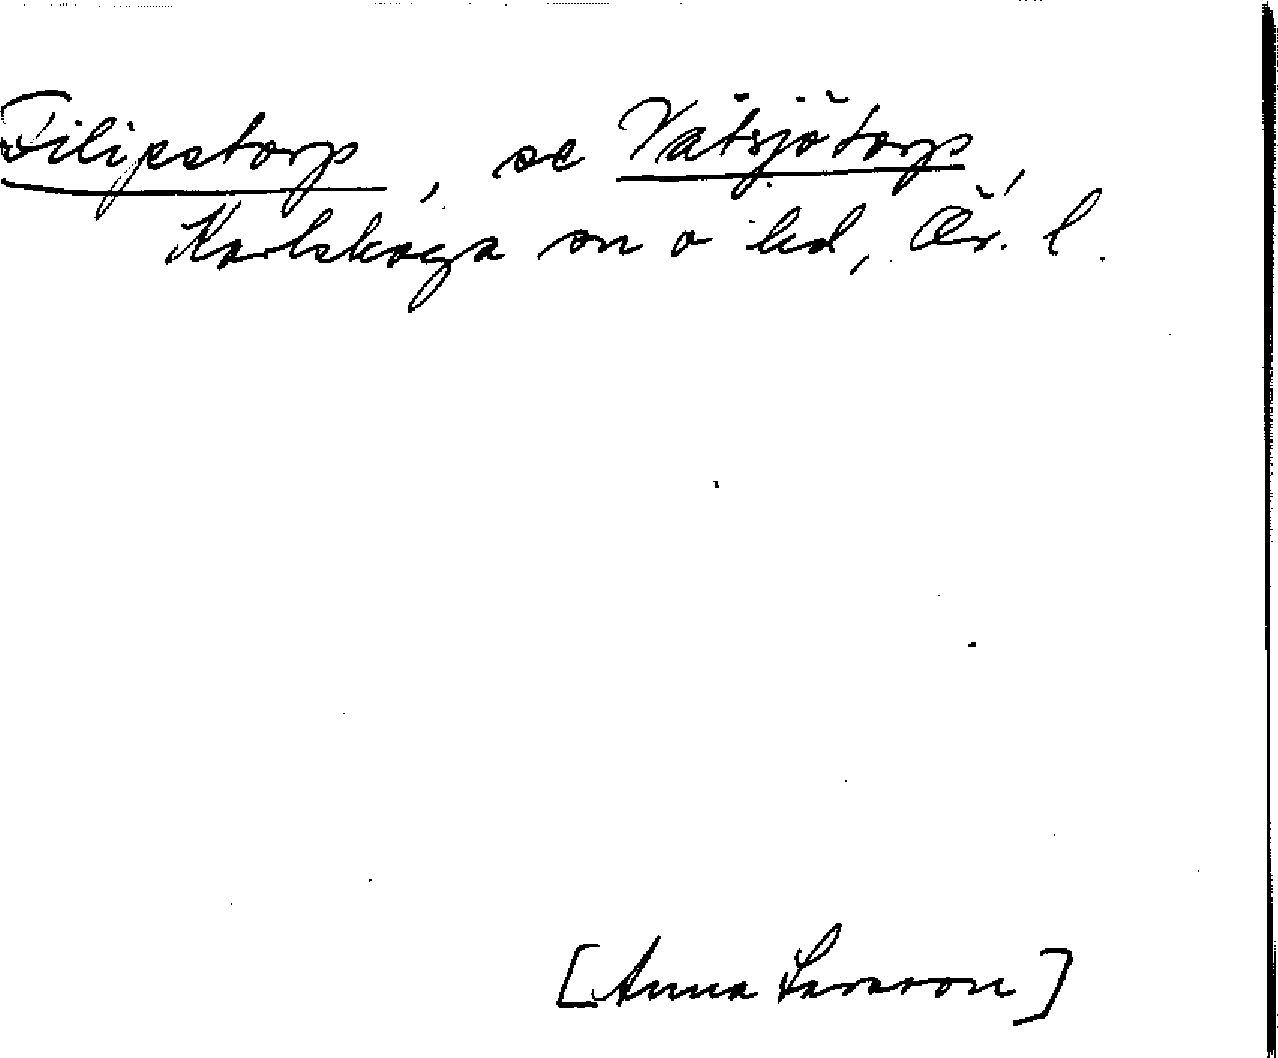 Filipstorp, se Vätsjötorp,
Karlskoga sn o hd, Ör. l.
[Anna Larsson]